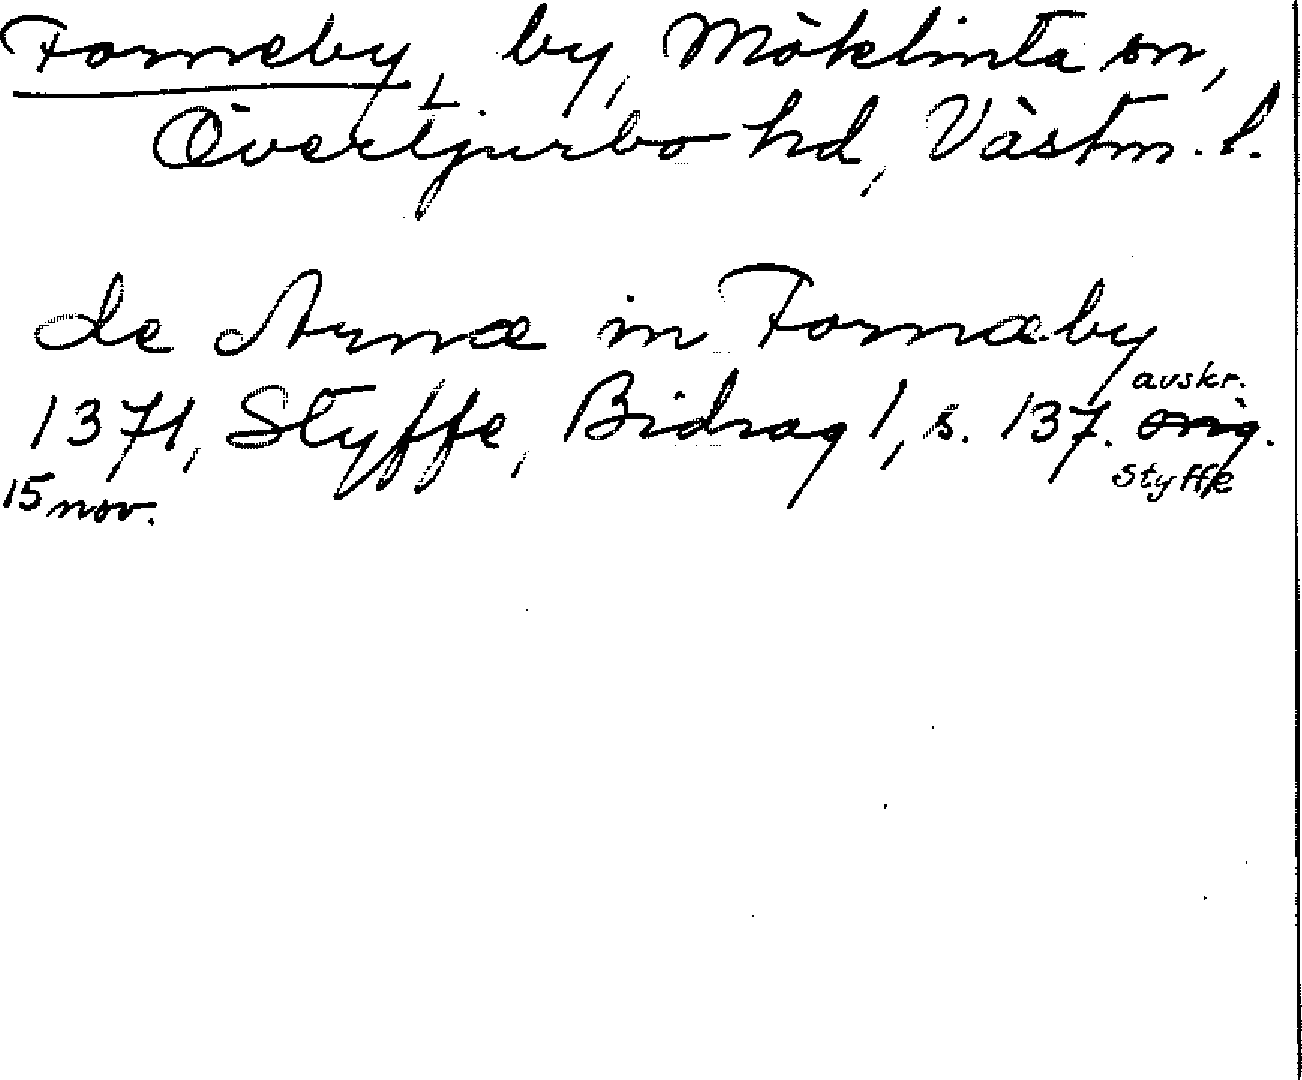 Forneby, by, Möklinta sn,
Övertjurbo hd, Västm. l.
de Arnæ in Fornæby
avskr.
1371, Styffe, Bidrag 1, s. 137. orig.
15 nov.
Styffe